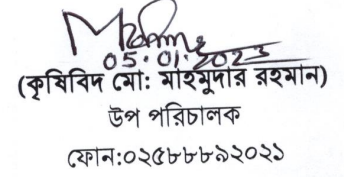 05.01.2023
(কৃষিবিদ মো: মাহমুদার রহমান)
উপ পরিচালক
ফোন:০২৫৮৮৮৯২০২১